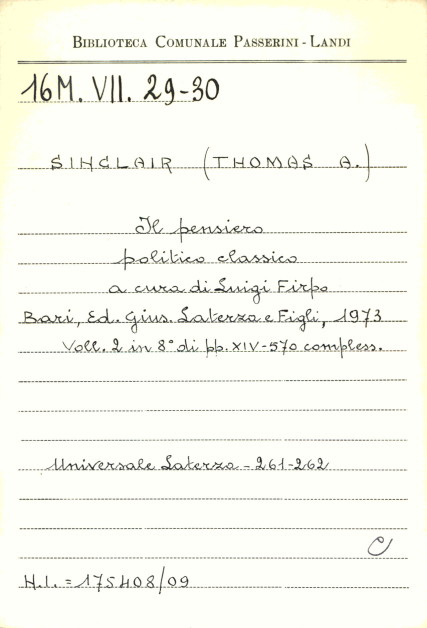 BIBLIOTECA COMUNALE PASSERINI - LANDI
16M. VII. 29-30
SINCLAIR (THOMAS A.)
Il pensiero
politico classico
a cura di Luigi Firpo
Bari, Ed. Gius. Laterza e Figli, 1973
Voll. 2 in 8° di pp. XIV-570 compless.
Universale Laterza - 261-262
C
N.I. = 175408/09